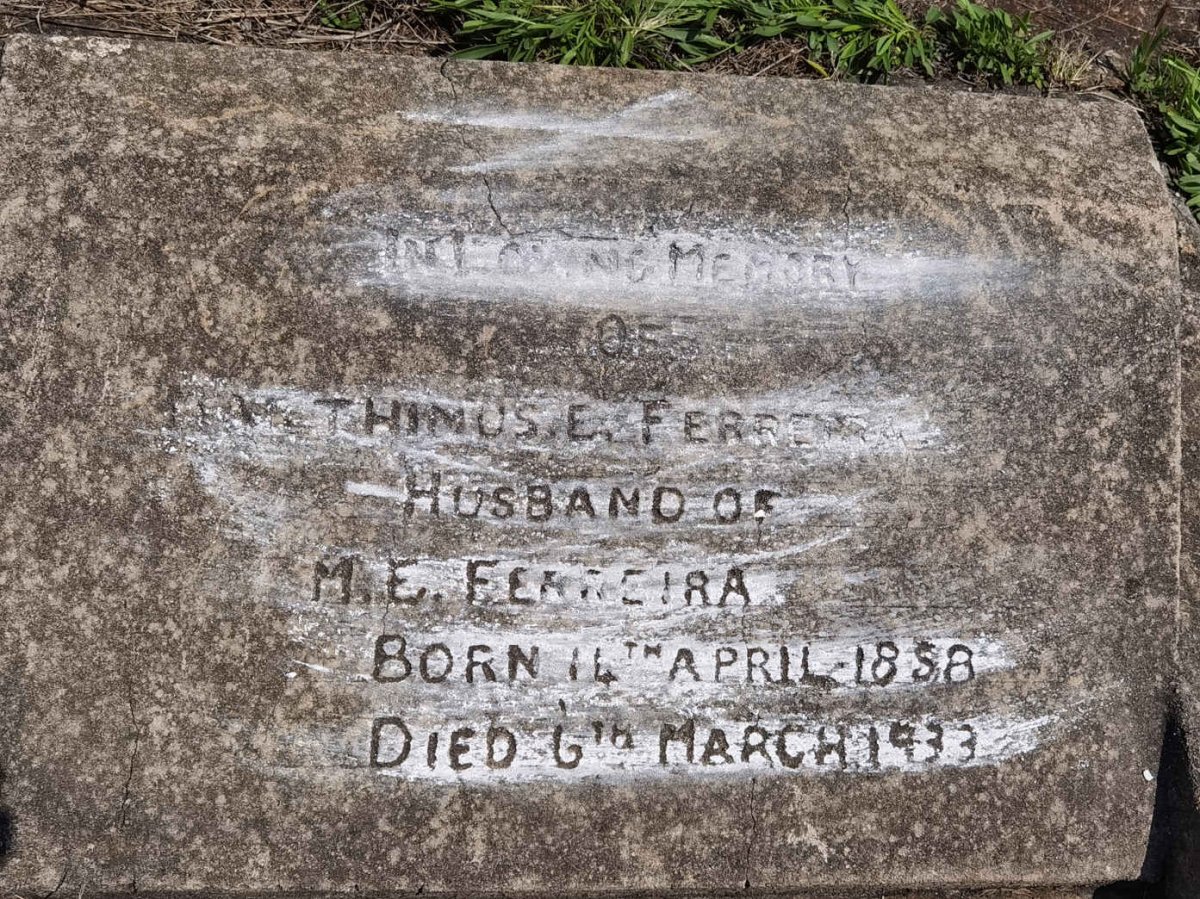 IN LOVING MEMORY
OF
E. FERREIRA
HUSBAND OF
M. E. FERREIRA
BORN 14TH APRIL 1858
DIED 6th MARCH 1933